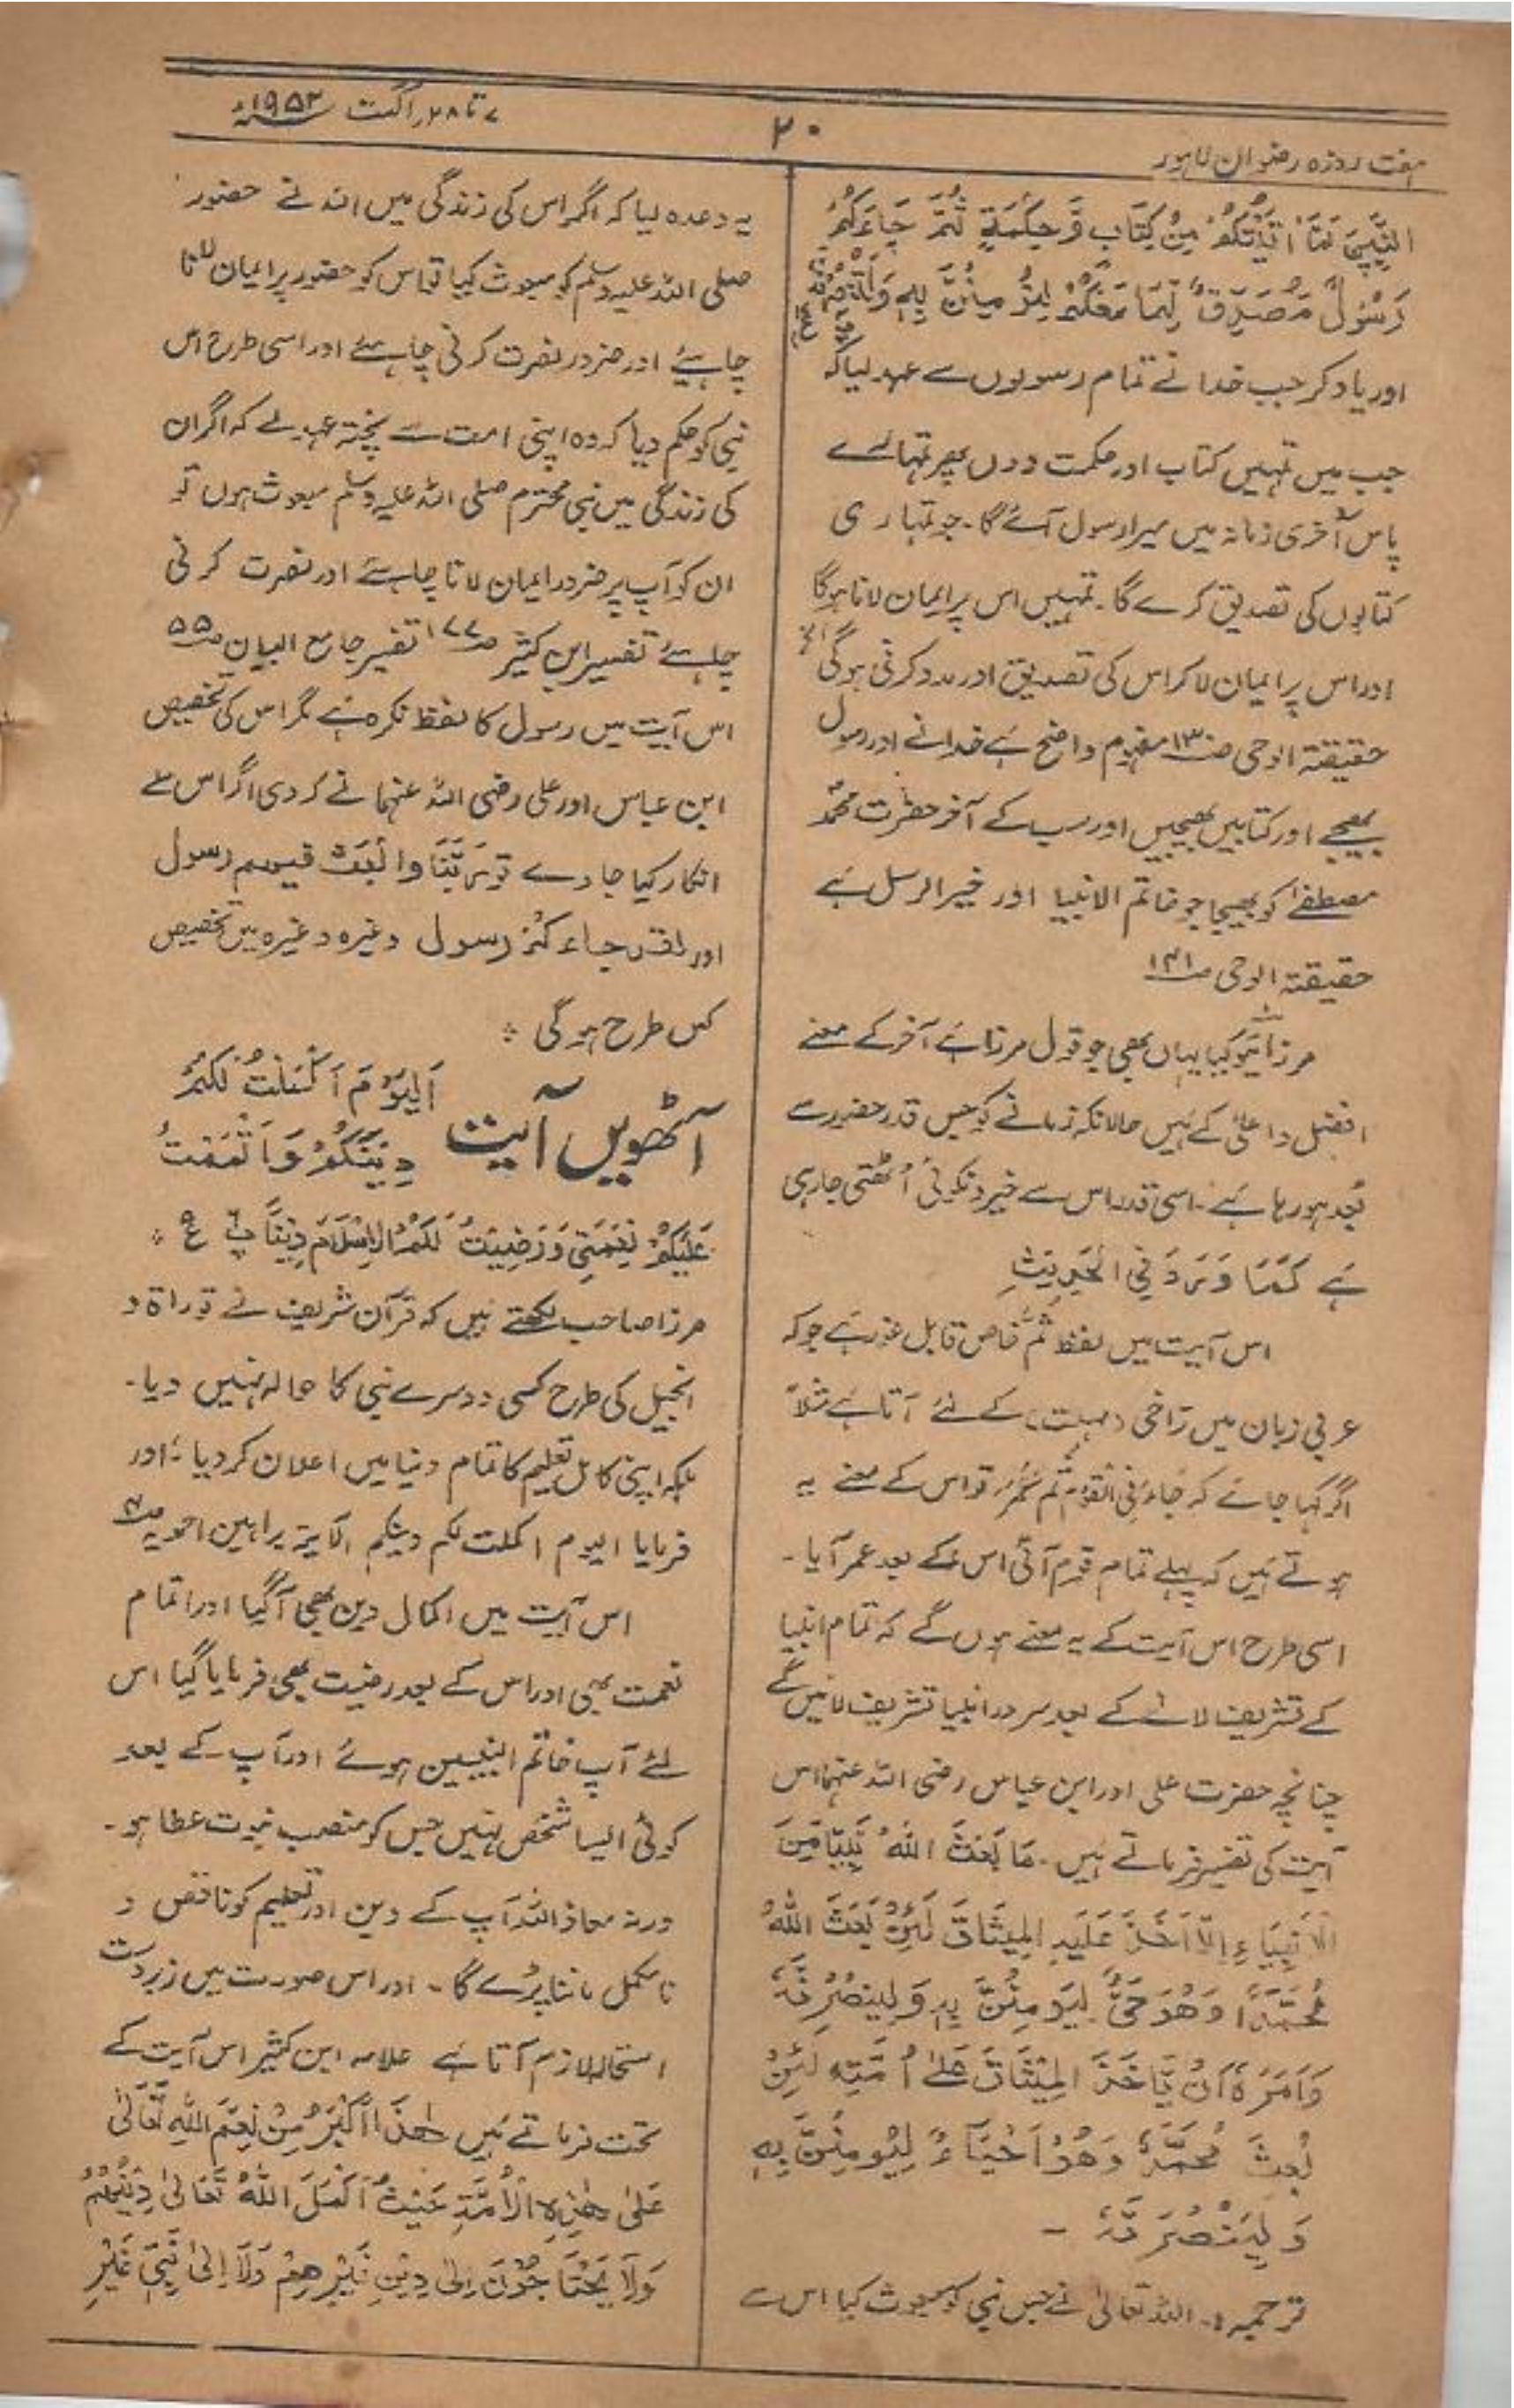 ہفت روزہ رضوان لاہور
۲۰
۷ تا ۲۸ اگست ۱۹۵۲ء
النَّبِیِّیْنَ لَمَا اٰتَیْتُکُمْ مِنْ کِتَابٍ وَّحِکْمَةٍ ثُمَّ جَاءَکُمْ
رَسُوْلٌ مُصَدِّقٌ لِمَا مَعَکُمْ لِتُؤْمِنُنَّ بِهٖ وَلَتَنْصُرُنَّهٗ
اور یاد کر جب خدا نے تمام رسولوں سے عہد لیا کہ
جب میں تمہیں کتاب اور حکمت دوں پھر تمہارے
پاس آخری زمانہ میں میرا رسول آئے گا۔ جو تمہاری
کتابوں کی تصدیق کرے گا۔ تمہیں اس پر ایمان لانا ہوگا
اور اس پر ایمان لا کر اس کی تصدیق اور مدد کرنی ہوگی الخ
حقیقتہ الوحی ص۱۳۰ مفہوم واضح ہے خدا نے اور رسول
بھیجے اور کتابیں بھیجیں اور سب کے آخر حضرت محمدؐ
مصطفےٰ کو بھیجا جو خاتم الانبیا اور خیر الرسل ہے
حقیقتہ الوحی ص۱۴۱
مرزائیو کیا یہاں بھی جو قول مرزا ہے آخر کے معنے
افضل و اعلیٰ کے ہیں حالانکہ زمانے کو جس قدر حضور سے
بُعد ہو رہا ہے۔ اسی قدر اس سے خیر و نکوئی اُٹھتی جا رہی
ہے کَمَا وَرَدَ فِی الْحَدِیْثِ
اس آیت میں لفظ ثُمَّ خاص قابل غور ہے جو کہ
عربی زبان میں تراخی (مہلت) کے لئے آتا ہے مثلاً
اگر کہا جائے کہ جَاءَنِی الْقَوْمُ ثُمَّ عُمَرُ تو اس کے معنے یہ
ہوتے ہیں کہ پہلے تمام قوم آئی اس کے بعد عمر آیا۔
اسی طرح اس آیت کے یہ معنے ہوں گے کہ تمام انبیا
کے تشریف لانے کے بعد سرور انبیا تشریف لائیں گے
چنانچہ حضرت علی اور ابن عباس رضی اللہ عنہما اس
آیت کی تفسیر فرماتے ہیں۔ مَا بَعَثَ اللهُ نَبِیًّا مِّنَ
الْاَنْبِیَاءِ اِلَّا اَخَذَ عَلَیْهِ الْمِیْثَاقَ لَئِنْ بَعَثَ اللهُ
مُحَمَّدًا وَهُوَ حَیٌّ لِیَوْمِنُنَّ بِهٖ وَلِیَنْصُرَنَّهٗ
وَاَمَرَهٗ اَنْ یَّاْخُذَ الْمِیْثَاقَ عَلٰی اُمَّتِهٖ لَئِنْ
بُعِثَ مُحَمَّدٌ وَهُمْ اَحْیَآءٌ لِیُوْمِنُنَّ بِهٖ
وَلِیَنْصُرَنَّهٗ ۔
ترجمہ :۔ اللہ تعالیٰ نے جس نبی کو مبعوث کیا اس سے
یہ وعدہ لیا کہ اگر اس کی زندگی میں اللہ نے حضور
صلی اللہ علیہ وسلم کو مبعوث کیا تو اس کو حضور پر ایمان لانا
چاہیئے اور ضرور نصرت کرنی چاہئے اور اسی طرح اس
نبی کو حکم دیا کہ وہ اپنی امت سے پختہ عہد لے کہ اگر ان
کی زندگی میں نبی محترم صلی اللہ علیہ وسلم مبعوث ہوں تو
ان کو آپ پر ضرور ایمان لانا چاہئے اور نصرت کرنی
چاہئے تفسیر ابن کثیر ص۱۷۷ تفسیر جامع البیان ص۵۵
اس آیت میں رسول کا لفظ نکرہ ہے مگر اس کی تخصیص
ابن عباس اور علی رضی اللہ عنہما نے کر دی اگر اس سے
انکار کیا جاوے تو رَبَّنَا وَابْعَثْ فیهم رسول
اور لقد جاءکم رسول وغیرہ وغیرہ میں تخصیص
کس طرح ہوگی ۔
آٹھویں آیت
اَلْیَوْمَ اَکْمَلْتُ لَکُمْ
دِیْنَکُمْ وَاَتْمَمْتُ
عَلَیْکُمْ نِعْمَتِیْ وَرَضِیْتُ لَکُمُ الْاِسْلَامَ دِیْنًا پ۶ ع۵
مرزا صاحب لکھتے ہیں کہ قرآن شریف نے توراۃ و
انجیل کی طرح کسی دوسرے نبی کا حوالہ نہیں دیا۔
بلکہ اپنی کامل تعلیم کا تمام دنیا میں اعلان کر دیا۔ اور
فرمایا الیوم اکملت لکم دینکم الآیۃ براہین احمدیہ ص۴
اس آیت میں اکمال دین بھی آگیا اور اتمام
نعمت بھی اور اس کے بعد رضیت بھی فرمایا گیا اس
لئے آپ خاتم النبیین ہوئے اور آپ کے بعد
کوئی ایسا شخص نہیں جس کو منصب نبوت عطا ہو۔
ورنہ معاذ اللہ آپ کے دین اور تعلیم کو ناقص و
نامکمل ماننا پڑے گا۔ اور اس صورت میں زبردست
استحالہ لازم آتا ہے علامہ ابن کثیر اس آیت کے
تحت فرماتے ہیں هٰذَا اَکْبَرُ مِنْ نِعَمِ اللهِ تَعَالٰی
عَلٰی هٰذِهِ الْاُمَّةِ حَیْثُ اَکْمَلَ اللهُ تَعَالٰی دِیْنَهُمْ
وَلَا یَحْتَاجُوْنَ اِلٰی دِیْنٍ غَیْرِهِمْ وَلَا اِلٰی نَبِیٍّ غَیْرِ